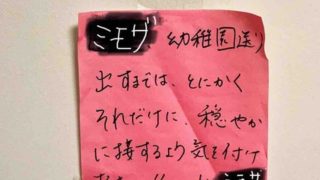 ミモザ 幼稚園送り
出すまでは、とにかく
それだけに、穏やか
に接するよう気を付け
ミモザ